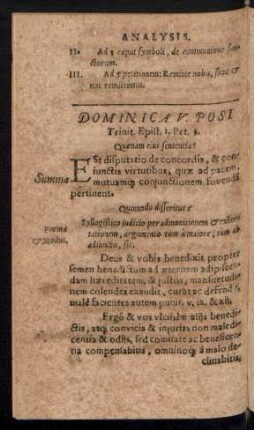 ANALYSIS.
II. Ad 3 caput symboli, de communione san-
ctorum.
III. Ad 5 petitionem: Remitte nobis, sicut &
nos remittimus.
DOMINICA V. POST
Trinit. Epist. 1. Pet. 3.
Quænam eius sententia?
Summa
Est disputatio de concordia, & con-
iunctis virtutibus, quæ ad pacem,
mutuamq; conjunctionem fovendā
pertinent.
Quomodo disseritur?
Forma
& Modus.
Syllogistico judicio per admonitionem & exhor-
tationem, argumento tum à maiore, tum ab
adiuncto, sic.
Deus & vobis benedixit propter
semen benedictum ad æternam adipiscen-
dam hæreditatem, & justos, mansuetudi-
nem colendes exaudit, curat ac defendit,
male facientes autem punit. v. ix. & xii.
Ergò & vos vicissim alijs benedi-
ctis, atq; convicia & injurias non maledi-
centia & odijs, sed comitate ac beneficen-
tia compensabitis, omninoq; à malo de-
clinabitis,